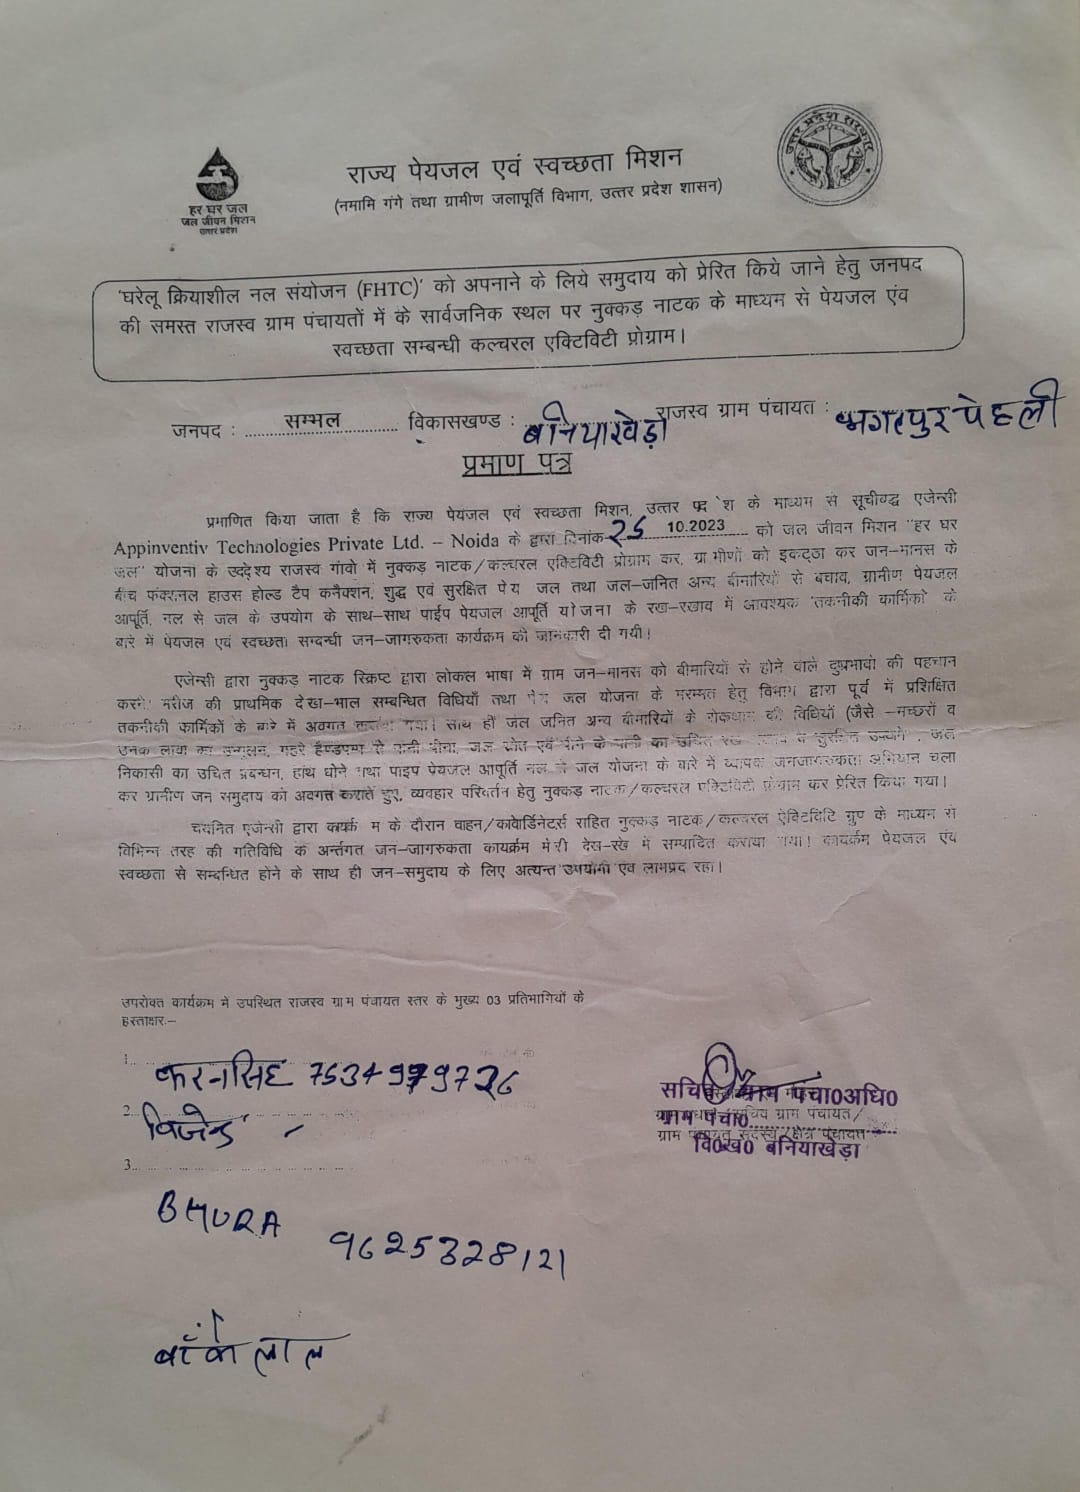 हर घर जल
जल जीवन मिशन
उत्तर प्रदेश
उत्तर प्रदेश सरकार
राज्य पेयजल एवं स्वच्छता मिशन
(नमामि गंगे तथा ग्रामीण जलापूर्ति विभाग, उत्तर प्रदेश शासन)
'घरेलू क्रियाशील नल संयोजन (FHTC)' को अपनाने के लिये समुदाय को प्रेरित किये जाने हेतु जनपद
की समस्त राजस्व ग्राम पंचायतों में के सार्वजनिक स्थल पर नुक्कड़ नाटक के माध्यम से पेयजल एंव
स्वच्छता सम्बन्धी कल्चरल एक्टिविटी प्रोग्राम।
जनपद : सम्भल विकासखण्ड : बनियाखेड़ा राजस्व ग्राम पंचायत : भगतपुर पेहली
प्रमाण पत्र
प्रमाणित किया जाता है कि राज्य पेयजल एवं स्वच्छता मिशन, उत्तर के माध्यम से सूचीवद्ध एजेन्सी
Appinventiv Technologies Private Ltd. – Noida के द्वारा दिनांक 25 10.2023 को जल जीवन मिशन "हर घर
जल" योजना के उद्देश्य राजस्व गांवो में नुक्कड़ नाटक/कल्चरल एक्टिविटी प्रोग्राम कर, ग्रामीणों को इकट्ठा कर जन-मानस के
बीच फंक्शनल हाउस होल्ड टैप कनैक्शन, शुद्ध एवं सुरक्षित पेय जल तथा जल-जनित अन्य बीमारियों से बचाव, ग्रामीण पेयजल
आपूर्ति, नल से जल के उपयोग के साथ-साथ पाईप पेयजल आपूर्ति योजना के रख-रखाव में आवश्यक 'तकनीकी कार्मिको' के
बारे में पेयजल एवं स्वच्छता सम्बन्धी जन-जागरुकता कार्यक्रम की जानकारी दी गयी।
एजेन्सी द्वारा नुक्कड़ नाटक स्क्रिप्ट द्वारा लोकल भाषा में ग्राम जन-मानस को बीमारियों से होने वाले दुष्प्रभावो की पहचान
करने मरीज की प्राथमिक देख-भाल सम्बन्धित विधियाँ तथा पेय जल योजना के मरम्मत हेतु विभाग द्वारा पूर्व में प्रशिक्षित
तकनीकी कार्मिकों के बारे में अवगत कराया गया। साथ ही जल जनित अन्य बीमारियों के रोकथाम की विधियों (जैसे -मच्छरों व
उनके लार्वा का उन्मूलन, गहरे हैण्डपम्प से पानी पीना, जल स्रोत एवं पीने के पानी का उचित रख जल
निकासी का उचित प्रबन्धन, हाथ धोने तथा पाइप पेयजल आपूर्ति नल से जल योजना के बारे में व्यापक जनजागरुकता अभियान चला
कर ग्रामीण जन समुदाय को अवगत कराते हुए, व्यवहार परिवर्तन हेतु नुक्कड़ नाटक/कल्चरल एक्टिविटी प्रोग्राम कर प्रेरित किया गया।
चयनित एजेन्सी द्वारा के दौरान वाहन/कोवार्डिनेटर्स सहित नुक्कड़ नाटक/कल्चरल ऐक्टिविटि ग्रुप के माध्यम से
विभिन्न तरह की गतिविधि के अर्न्तगत जन-जागरुकता कायर्क्रम मेरी देख-रेख में सम्पादित कराया गया। कायर्क्रम पेयजल एंव
स्वच्छता से सम्बन्धित होने के साथ ही जन-समुदाय के लिए अत्यन्त उपयोगी एंव लाभप्रद रहा।
उपरोक्त कार्यक्रम में उपस्थित राजस्व ग्राम पंचायत स्तर के मुख्य 03 प्रतिभागियों के
हस्ताक्षर:–
1. करनसिंह
2. विजेन्द्र
3.
BHURA 9625328121
बाँके लाल
सचिव ग्राम पंचा0अधि0
ग्राम पंचा0
वि0ख0 बनियाखेड़ा